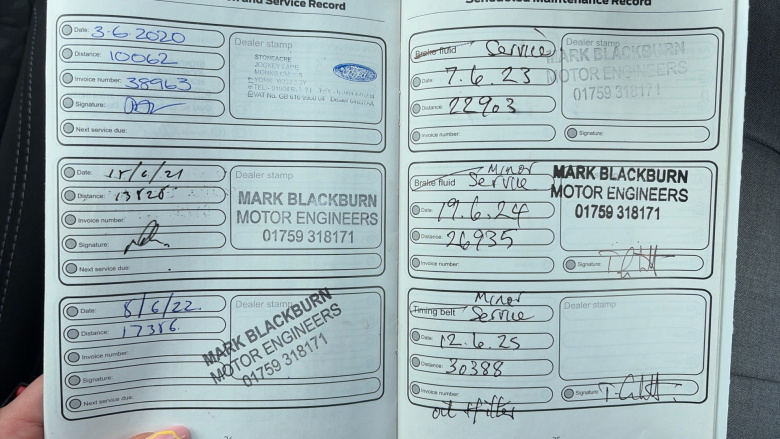 and Service Record
Date: 3-6-2020
Distance: 10062
Invoice number: 38963
Signature:
Next service due:
Dealer stamp
STONEACRE
JOCKEY LANE
Date: 15/6/21
Distance:
Invoice number:
Signature:
Next service due:
Dealer stamp
MARK BLACKBURN
MOTOR ENGINEERS
01759 318171
Date: 8/6/22
Distance: 17386
Invoice number:
Signature:
Next service due:
Dealer stamp
MARK BLACKBURN
MOTOR ENGINEERS
01759 318171
Scheduled Maintenance Record
Brake fluid Service
Date: 7.6.23
Distance: 22903
Invoice number:
Dealer stamp
MARK BLACKBURN
MOTOR ENGINEERS
01759 318171
Signature:
Minor
Brake fluid Service
Date: 19.6.24
Distance: 26935
Invoice number:
MARK BLACKBURN
MOTOR ENGINEERS
01759 318171
Signature:
Minor
Timing belt Service
Date: 12.6.25
Distance: 30388
Invoice number:
oil & filter
Dealer stamp
Signature: